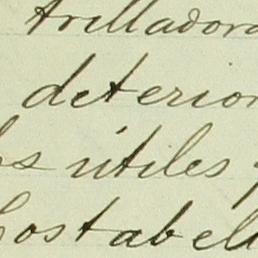 trillador
deterior
útiles
Costabel